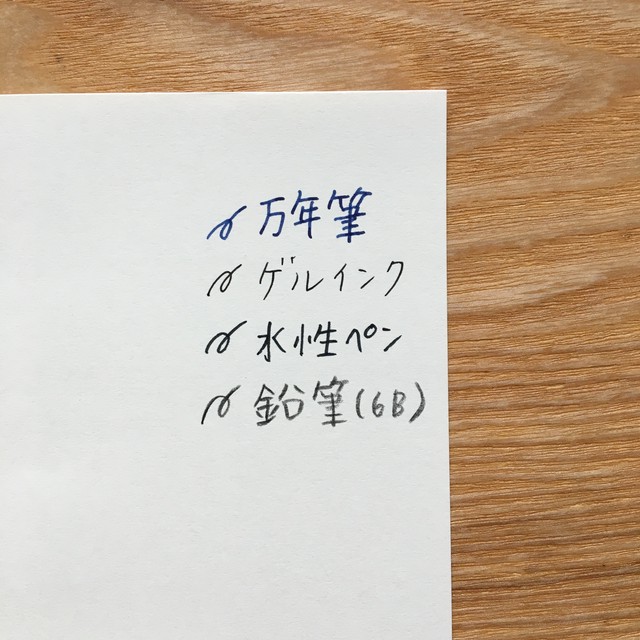 万年筆
ゲルインク
水性ペン
鉛筆(6B)